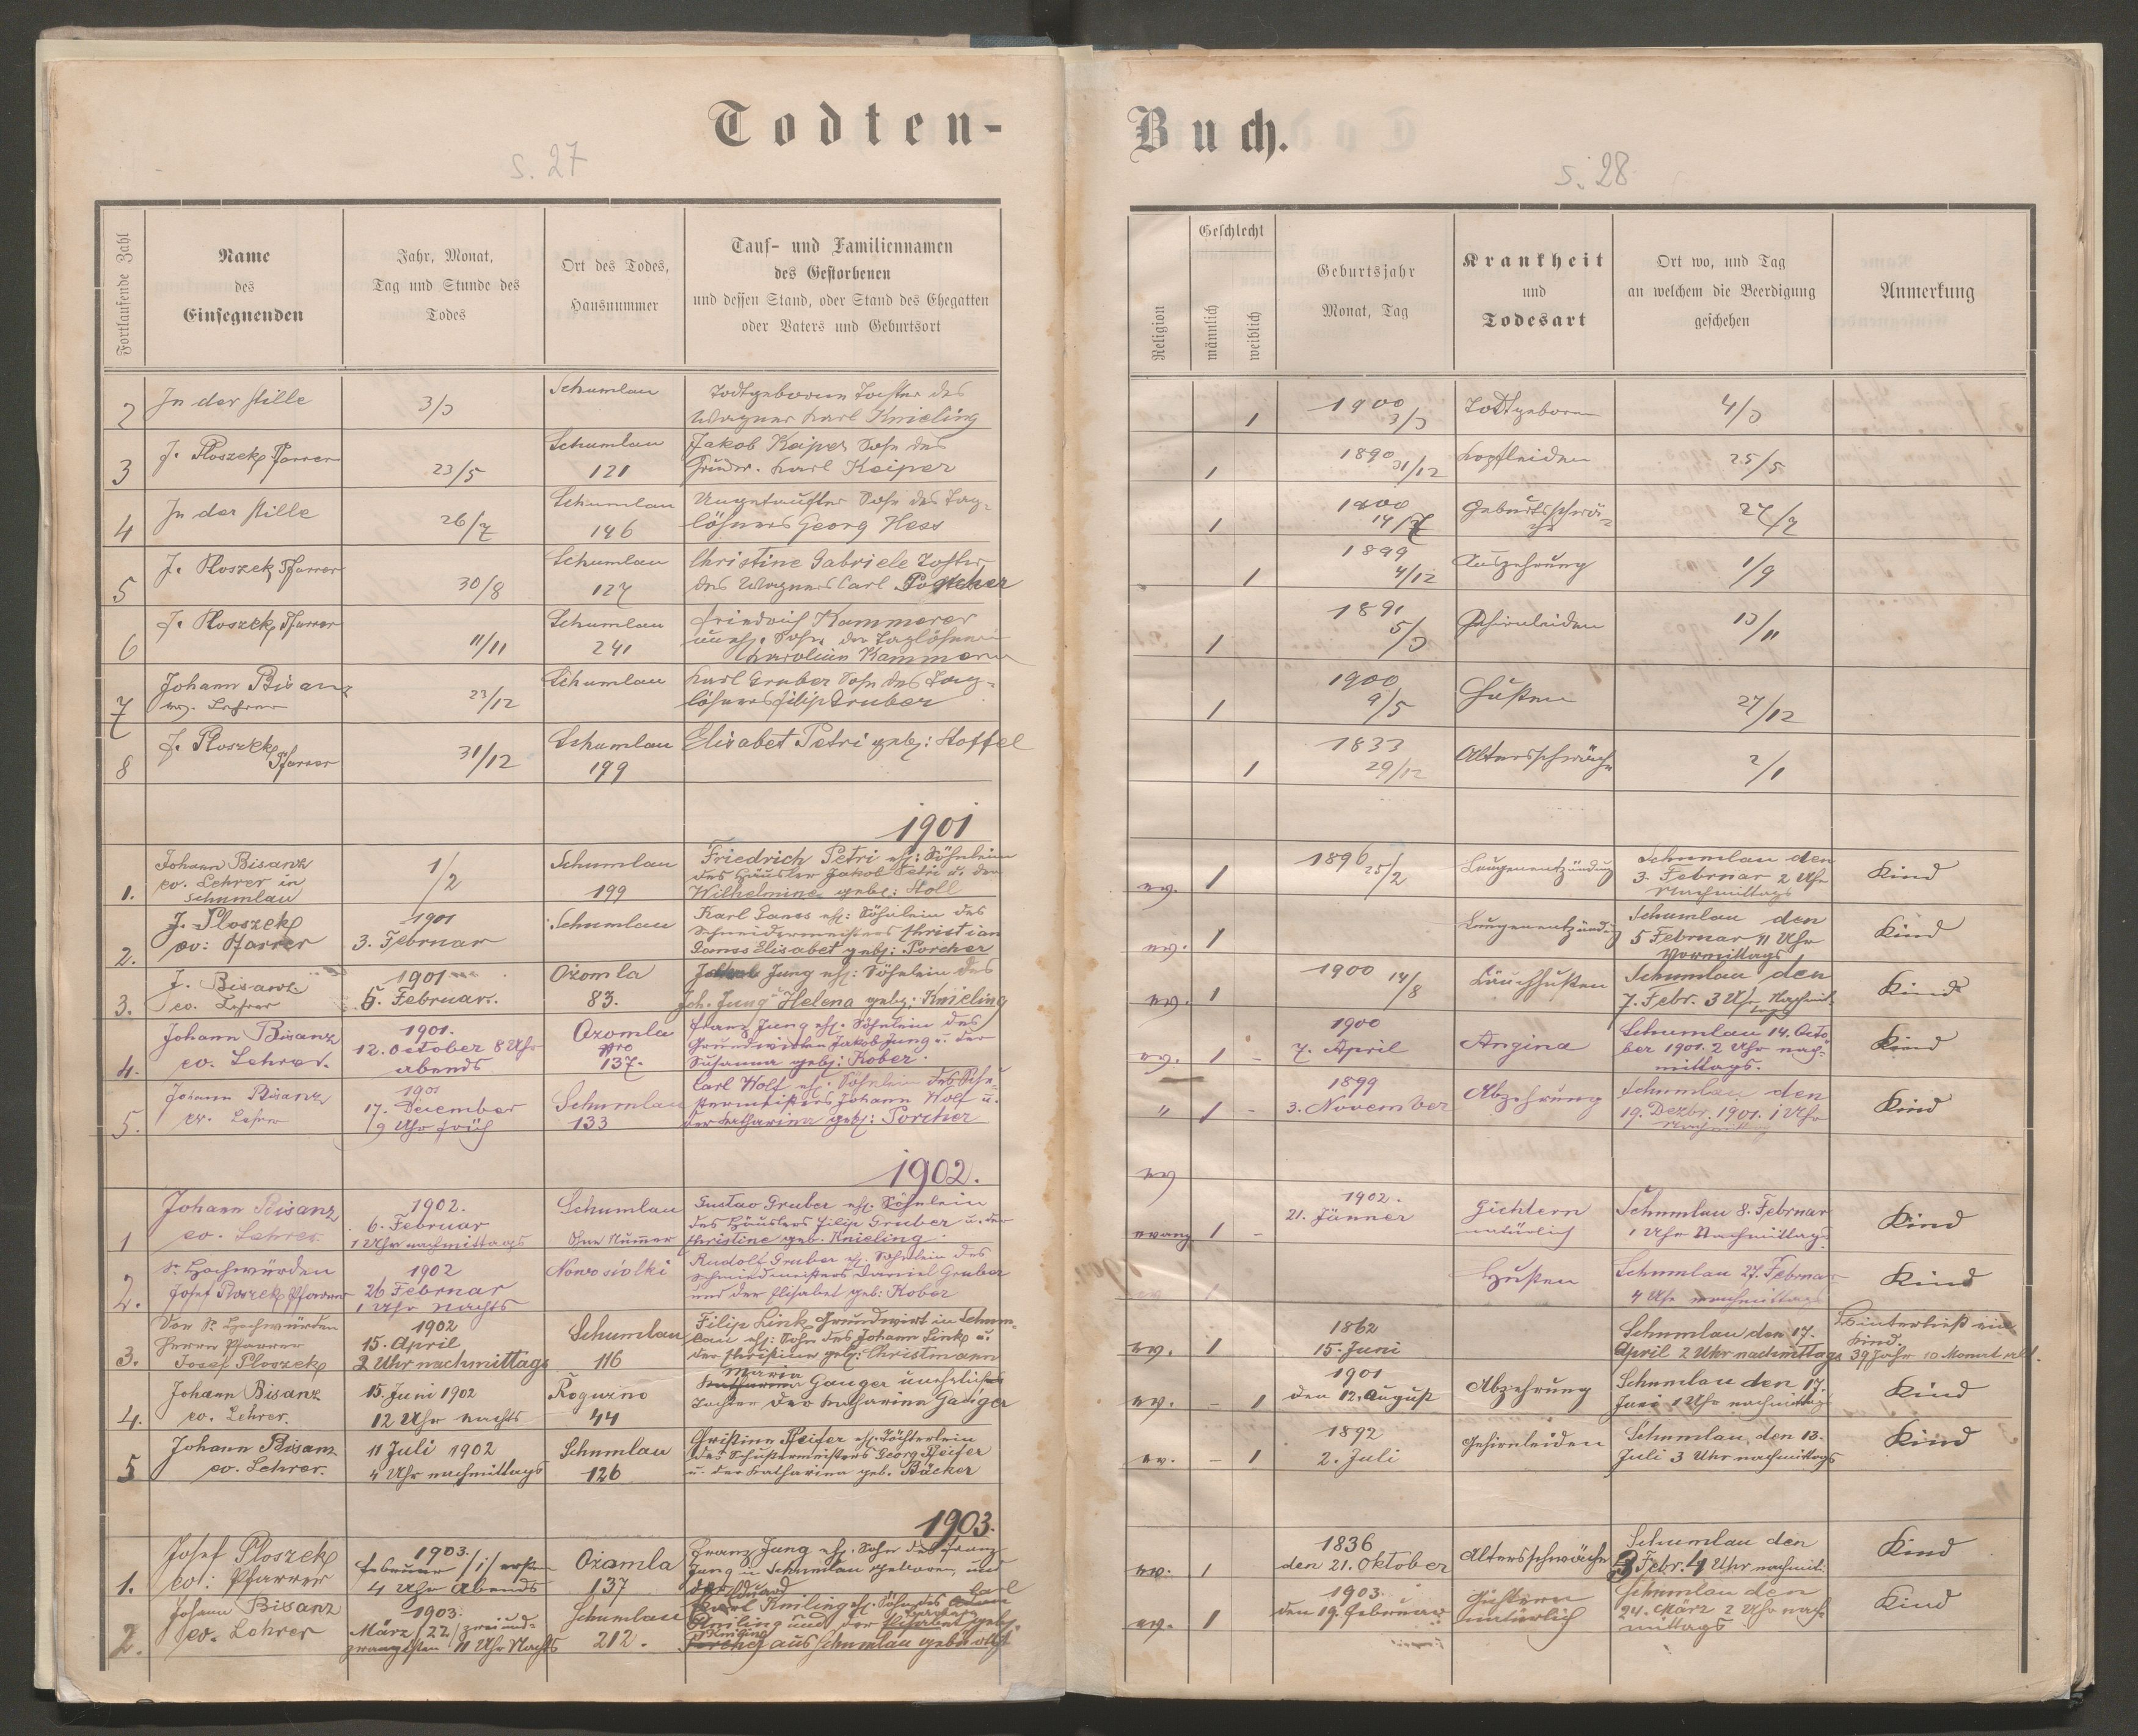 Todten-
Buch.
s. 27
s. 28
Fortlaufende Zahl
Name
des
Einsegnenden
Jahr, Monat,
Tag und Stunde des
Todes
Ort des Todes,
Hausnummer
Tauf- und Familiennamen
des Gestorbenen
und dessen Stand, oder Stand des Ehegatten
oder Vaters und Geburtsort
Religion
Geschlecht
männlich
weiblich
Geburtsjahr
Monat, Tag
Krankheit
und
Todesart
Ort wo, und Tag
an welchem die Beerdigung
geschehen
Anmerkung
2 In der stille 3/3 Schumlau Todtgeborene Tochter des
Wagner Karl Knieling 1 1900 3/3 Todtgeboren 4/3
3 J. Ploszek Pfarrer 23/5 Schumlau 121 Jakob Keiper Sohn des
Karl Keiper 1 1890 31/12 Kopfleiden 25/5
4 In der stille 26/7 Schumlau 146 Ungetaufter Sohn des Tag-
löhners Georg Hess 1 1900 19/7 Geburtsschwä- 27/7
5 J. Ploszek Pfarrer 30/8 Schumlau 127 Christine Gabriele Tochter
des Wagners Carl Porcher 1 1899 4/12 Auszehrung 1/9
6 J. Ploszek Pfarrer 11/11 Schumlau 241 Friedrich Kammerer
unehl. Sohn der Taglöhnerin
Karolina Kammerer 1 1891 5/3 Gehirnleiden 13/11
7 Johann Bisanz
ev. Lehrer 23/12 Schumlau Karl Gruber Sohn des Tag-
löhners Filip Gruber 1 1900 9/5 Husten 27/12
8 J. Ploszek
Pfarrer 31/12 Schumlau 199 Elisabet Petri geb: Stoffel 1 1833 29/12 Altersschwäche 2/1
1901
1. Johann Bisanz
ev. Lehrer in
Schumlau 1/2 Schumlau 199 Friedrich Petri ehl: Söhnlein
des Häusler Jakob Petri u. der
Wilhelmine geb: Holl ev. 1 1896 25/2 Lungenentzündung Schumlau den
3. Februar 2 Uhr
Nachmittags Kind
2. J. Ploszek
ev: Pfarrer 1901
3. Februar Schumlau Karl Ganss ehl: Söhnlein des
Schneidermeisters Christian
Ganss Elisabet geb: Porcher ev. 1 Lungenentzündg Schumlau den
5 Februar 11 Uhr
Vormittags Kind
3. J. Bisanz
ev. Lehrer 1901
5. Februar. Ożomla
83. Jung ehl: Söhnlein des
Joh. Jung u Helena geb: Knieling ev. 1 1900 14/8 Schumlau den
7. Febr. 3 Uhr Kind
4. Johann Bisanz
ev. Lehrer. 1901.
12. October 8 Uhr
abends Ozomla
Nro
137. Franz Jung ehl. Söhnlein des
Grundwirten Jakob Jung u. der
Susanna geb: Kober. ev. 1 - 1900
7. April Angina Schumlau 14. Octo
ber 1901. 2 Uhr nach-
mittags. Kind
5. Johann Bisanz
ev. Lehrer 1901
17. December
9 Uhr früh Schumlau
133 Carl Wolf ehl. Söhnlein des Schu-
stermeisters Johann Wolf u.
der Katharina geb: Porcher " 1 - 1899
3. November Abzehrung Schumlau den
19. Dezbr. 1901. 1 Uhr
Nachmittag Kind
1902.
ev
1 Johann Bisanz
ev. Lehrer 1902.
6. Februar
1 Uhr nachmittags Schumlau
Ohne Nummer Gustav Gruber ehl. Söhnlein
des Häuslers Filip Gruber u. der
Christine geb. Knieling evang 1 - 1902.
21. Jänner Gichtern
natürlich Schumlau 8. Februar
1 Uhr Nachmittag. Kind
2. Sr. Hochwürden
Josef Ploszek Pfarrer 1902
26 Februar
1 Uhr Nachts Nowosiolki Rudolf Gruber ehl. Söhnlein des
Schmiedmeisters Daniel Gruber
und der Elisabet geb: Kober 1 Husten Schumlau 27. Februar
4 Uhr nachmittags Kind
3. Von Sr. Hochwürden
Herrn Pfarrer
Josef Ploszek 1902
15. April
2 Uhr nachmittags Schumlau
116 Filip Link Grundwirt in Schum-
lau ehl: Sohn des Johann Link u.
der Christina geb: Christmann ev. 1 1862
15. Juni Schumlau den 17.
April 2 Uhr nachmittags Hinterließ ein
Kind.
39 Jahr 10 Monat alt.
4. Johann Bisanz
ev. Lehrer. 15. Juni 1902
12 Uhr nachts Roguzno
44 Maria
Katharina Gauger unehliche
Tochter der Katharina Gauger ev. - 1 1901
den 12. August Abzehrung Schumlau den 17.
Juni 1 Uhr nachmittag Kind
5 Johann Bisanz
ev. Lehrer. 11 Juli 1902
4 Uhr nachmittags Schumlau
126 Christina Pfeifer ehl. Töchterlein
des Schustermeisters Georg Pfeifer
u. der Katharina geb. Bäcker ev. - 1 1892
2. Juli Gehirnleiden Schumlau, den 13.
Juli 3 Uhr nachmittags Kind
1903.
1. Josef Ploszek
ev: Pfarrer 1903.
Februar /1/ ersten
4 Uhr Abends Ożamla
137 Franz Jung ehl. Sohn des Franz
Jung in Schumlau geboren, und
der ev. 1 1836
den 21. Oktober Altersschwäche Schumlau den
3 Febr. 4 Uhr nachmit. Kind
2. Johann Bisanz
ev. Lehrer 1903.
März /22/ zweiund-
zwanzigsten 11 Uhr Nachts Schumlau
212. Eduard
Karl Knieling ehl. Söhnlein des Carl
Knieling und der geb.
Knieling
Porcher aus Schumlau ev. 1 1903.
den 19. Februar
natürlich Schumlau den
24. März 2 Uhr nach
mittags Kind